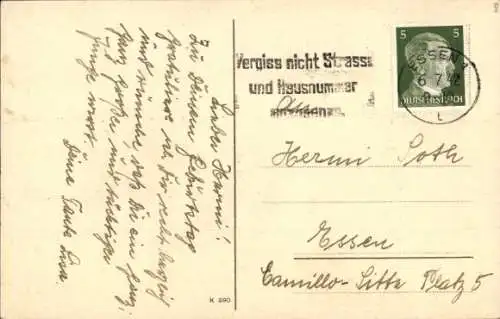 Lieber Hermi!
Zu Deinem Geburtstag
gratuliere ich Dir recht herzlich
und wünsche daß Du ein ganz,
ganz großer und tüchtiger
Junge wirst.
Deine Tante Lisa.
K 690
Vergiss nicht Strasse
und Hausnummer
anzugeben
ESSEN 1
6.7.42
5
5
Hermi Soth
Essen
Camillo-Sitte Platz 5